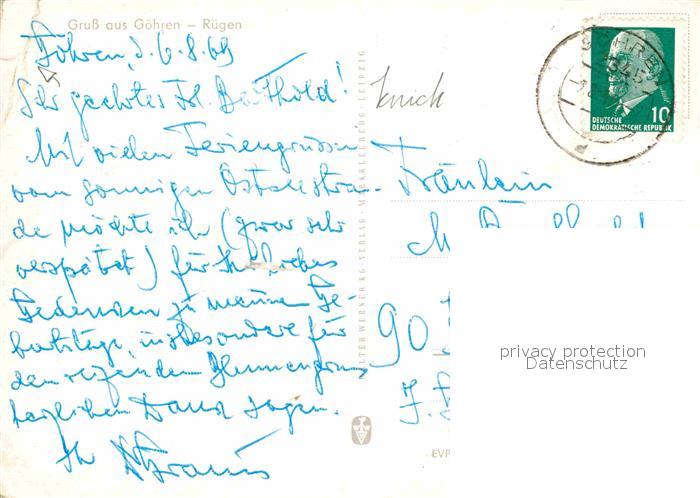 Gruß aus Göhren – Rügen
Göhren, d. 6.8.69
Sehr geehrtes Frl. Berthold!
Mit vielen Feriengrüssen
vom sonnigen Ostseestran-
de möchte ich (zwar sehr
verspätet) für Ihr liebes
Gedenken zu meinem Ge-
burtstage, insbesondere für
den reizenden Blumengruss
herzlichen Dank sagen.
Ihr
knick
DEUTSCHE
DEMOKRATISCHE REPUBLIK
10
Fräulein
M
90
privacy protection
Datenschutz
J.
EVP
VERLAG · MARKKLEEBERG · LEIPZIG